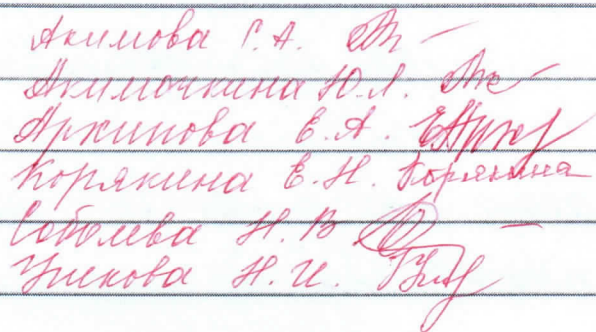 Акимова Г. А.
Акимочкина Ю. Л.
Архипова Е. А.
Корякина Е. Н. Корякина
Соболева Н. В
Н. И.